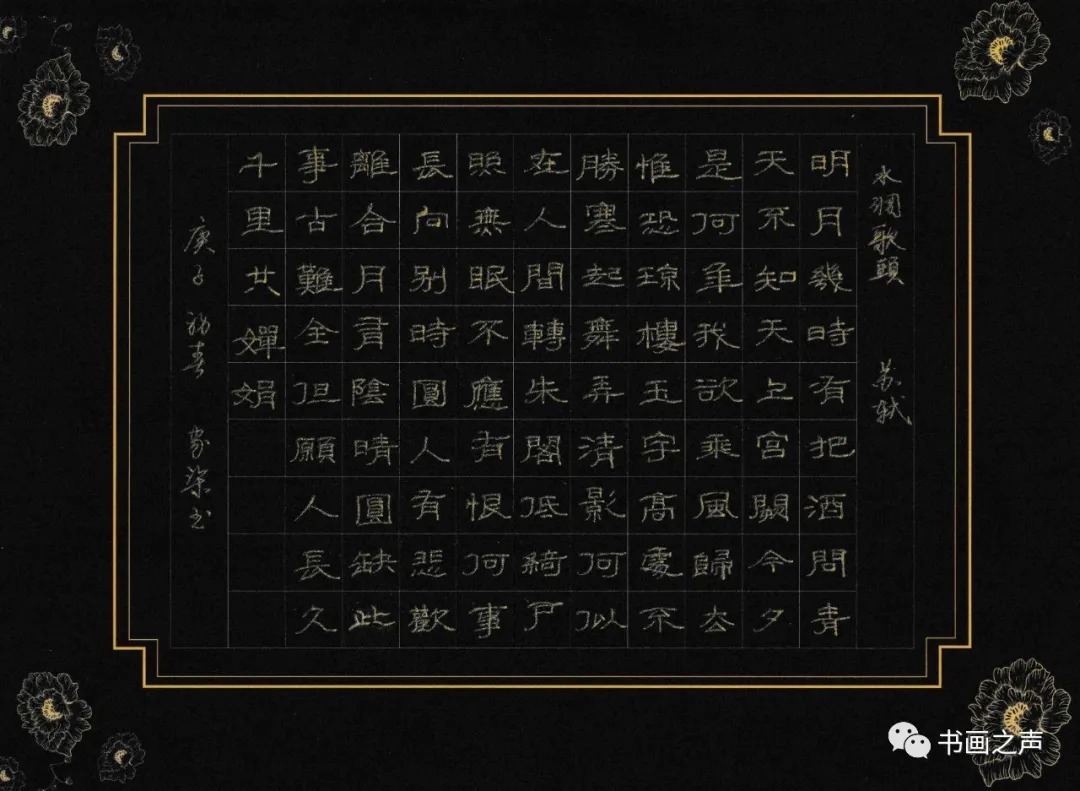 水調歌頭 苏轼
明月幾時有把酒問青
天不知天上宮闕今夕
是何年我欲乘風歸去
惟恐琼樓玉宇高處不
勝寒起舞弄清影何似
在人間轉朱閣低綺戶
照無眠不應有恨何事
長向别時圓人有悲歡
離合月有陰晴圓缺此
事古難全但願人長久
千里共嬋娟
庚子 初春 书
书画之声